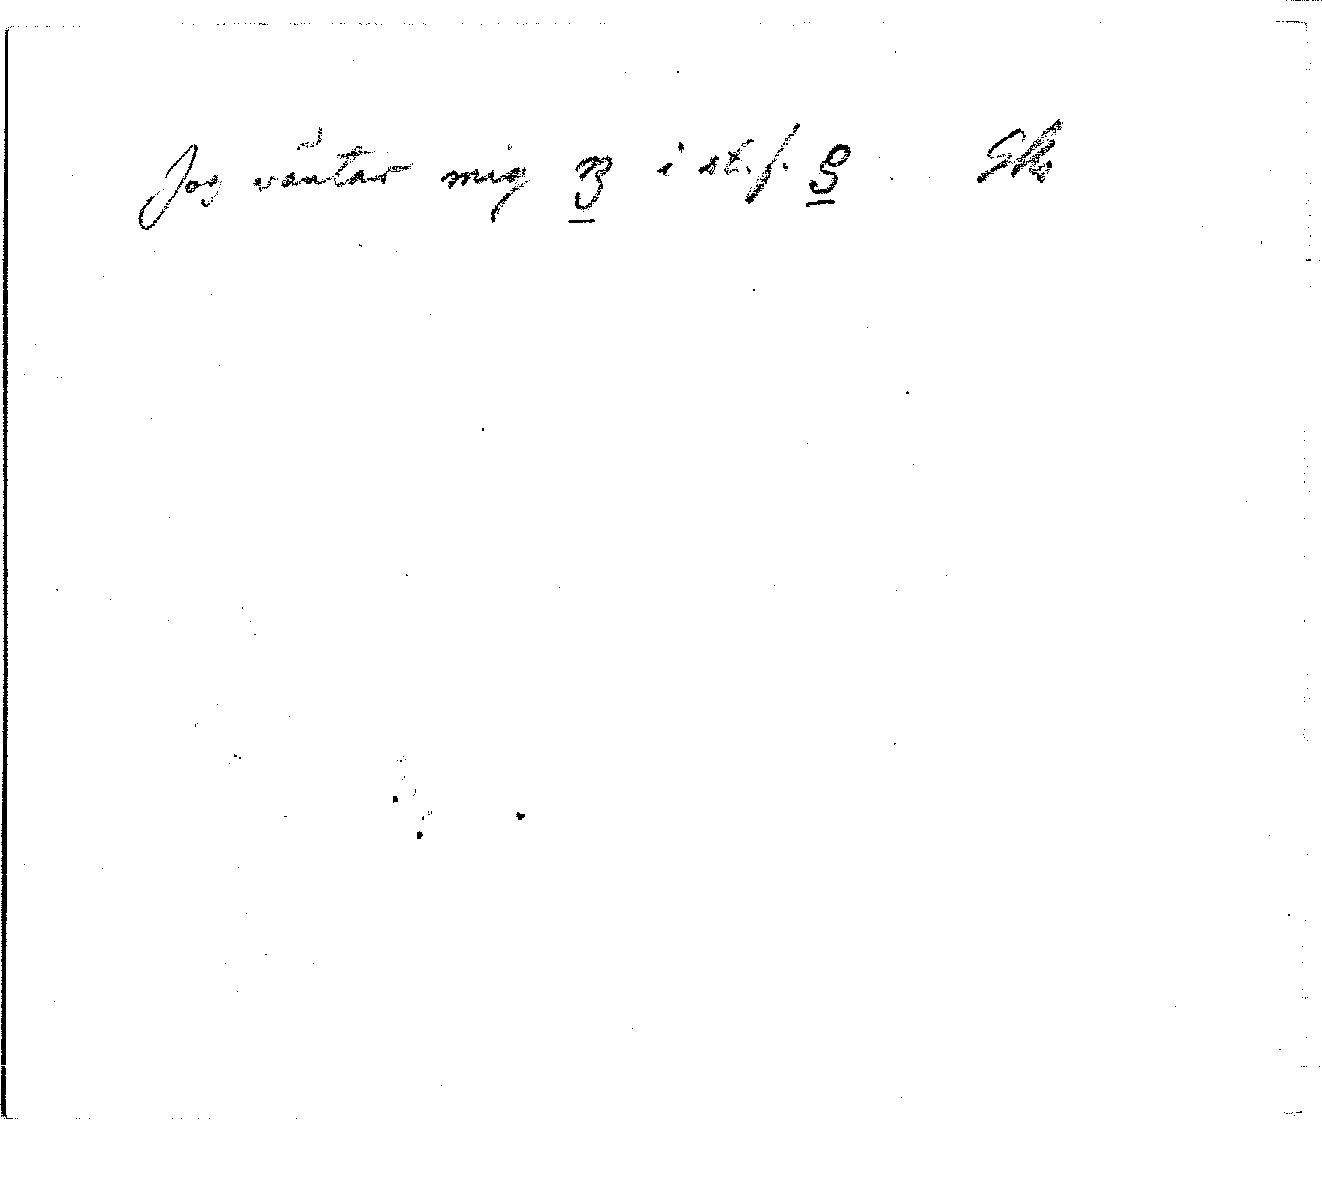 Jag väntar mig ʒ i st. f. ƍ